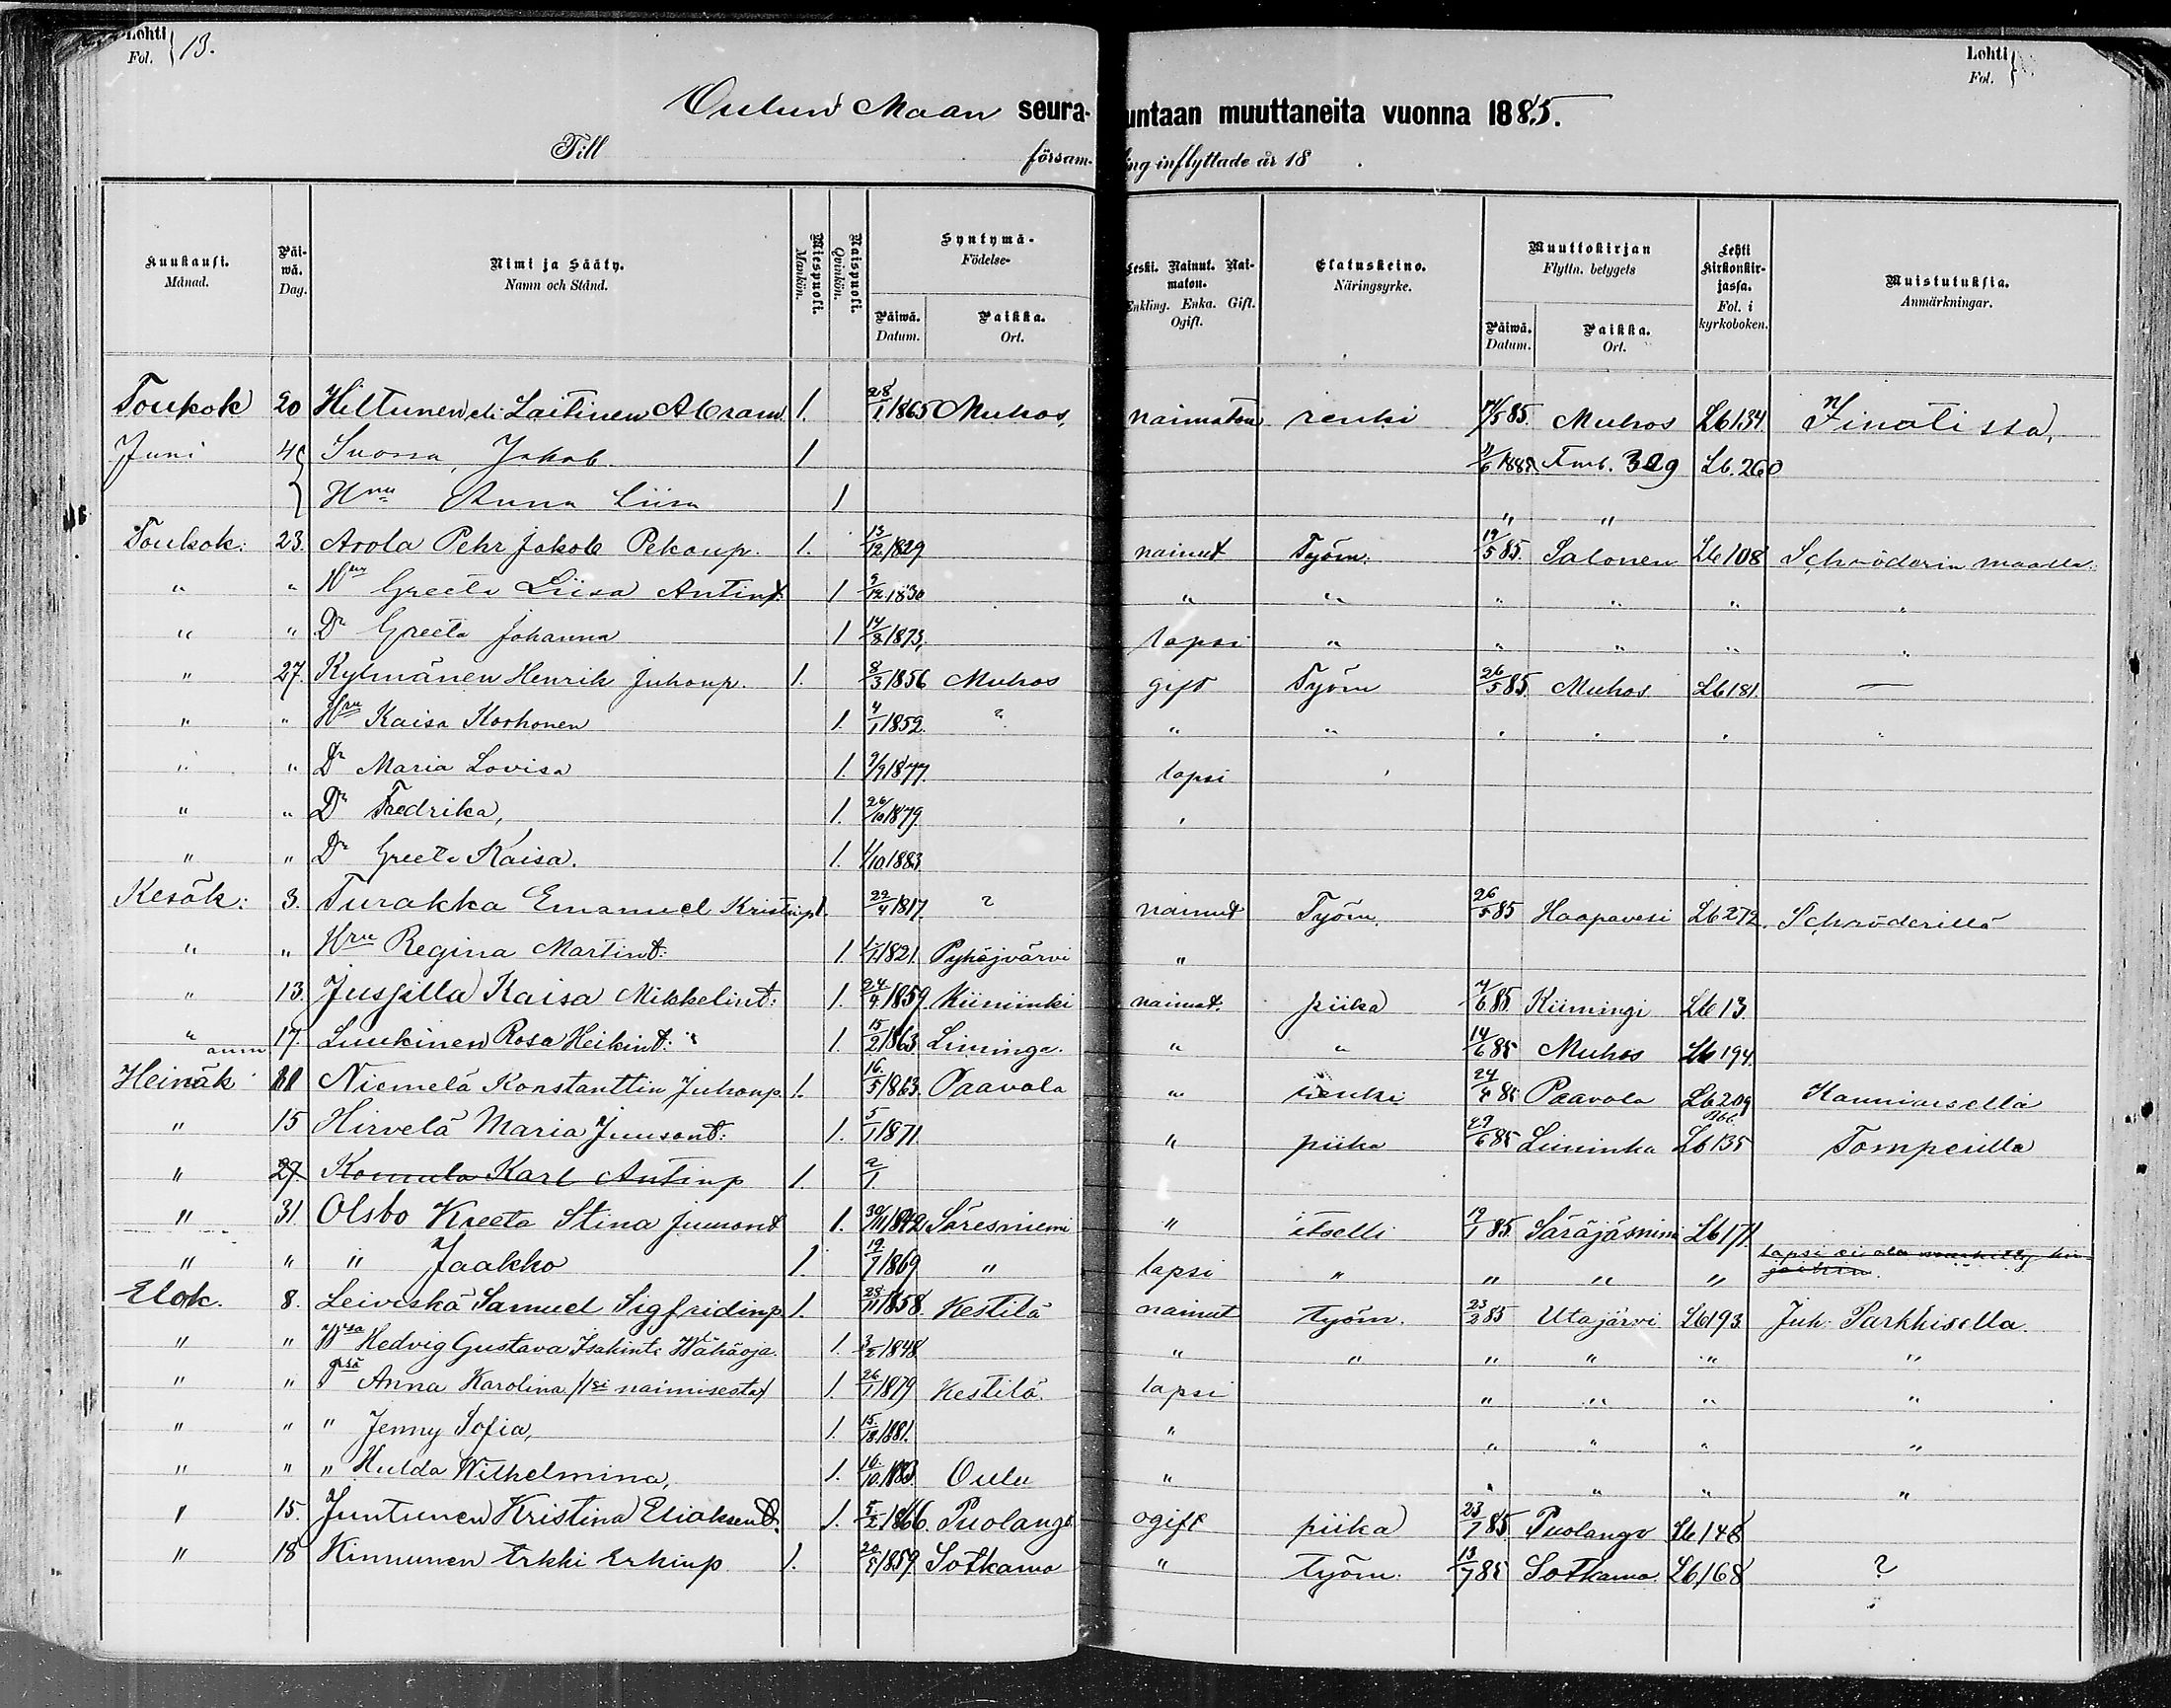 Lohti Fol. } 13.
Lohti Fol. }
Oulun Maan seura- untaan muuttaneita vuonna 1885.
Till försam- ling inflyttade år 18 .
Kuukausi. Månad. Päi-wä. Dag. Nimi ja Sääty. Namn och Stånd. Miespuoli. Mankön. Naispuoli. Quinkön. Syntymä- Födelse- Päiwä. Datum. Paikka. Ort. Leski. Nainut. Nai-maton. Enkling. Enka. Gift. Ogift. Elatuskeino. Näringsyrke. Muuttokirjan Flyttn. betygets Päiwä. Datum. Paikka. Ort. Lehti Kirkonkir-jassa. Fol. i kyrkoboken. Muistutuksia. Anmärkningar.
Toukok 20 Hiltunen eli Laitinen Abram 1. 28/1 1865 Muhos, naimaton renki 85. Muhos Lb 134
Juni 4 Suossa, Jakob. 1 Lb. 260
Hru Anna Liisa 1 " "
Toukok: 23. Arola Pehr Jakob Pekanp. 1. 13/12 1829 nainut Työm. 19/5 85. Salonen Lb 108 Schröderin maalla.
" " Hru Greeta Liisa Antint. 1 9/12 1830 " " " " " "
" " Dr Greeta Johanna 1 14/8 1873, lapsi " " " " "
" 27. Kylmänen Henrik Juhonp. 1. 8/3 1856 Muhos gift Työm 26/5 85. Muhos Lb 181. —
" " Hru Kaisa Korhonen 1. 4/1 1859. ? " " " " " "
" " Dr Maria Lovisa 1. 9/9 1877. lapsi
" " Dr Fredrika, 1. 26/10 1879.
" " Dr Greeta Kaisa. 1. 1/10 1883
Kesäk: 3. Turakka Emanuel Kristianp 1. 22/4 1817. ? nainut Työm. 26/5 85 Haapavesi Lb 272. Schröderillä
" " Hru Regina Martint: 1. 1/1 1821. Pyhäjärvi "
" 13. Jussilla Kaisa Mikkelint: 1. 24/4 1859. Kiiminki naimat. piika 7/6 85. Kiimingi Lb 13.
" 17. Luukinen Rosa Heikint: 1. 15/2 1863 Liminga. " " 14/6 85 Muhos Lb 194.
Heinäk 11 Niemelä Konstanttin Juhonp. 1. 16/5 1863. Paavola " renki 24/4 85 Paavola Lb 209
" 15 Hirvelä Maria Juusont: 1. 5/1 1871. " piika 29/6 85 Liminka Lb 135 Tomperilla
" 27. Komula Karl Antinp 1. 2/1.
" 31. Olsbo Kreeta Stina Juusont 1. 30/11 1842 Säresniemi " itselli 19/7 85. Säräjäsniemi Lb 171.
" " " Jaakko 1. 19/7 1869 " lapsi " " " " Lapsi ei ole merkitty kir-
joihin.
Elok. 8. Leiviskä Samuel Sigfridinp 1. 28/11 1858. Kestilä nainut työm. 23/2 85 Utajärvi Lb 193. Juh: Parkkisella.
" " Wsa Hedvig Gustava Isakint. Wähäoja. 1. 3/2 1848 " " " " " "
" " Anna Karolina /1si naimisesta/ 1. 26/1 1879 Kestilä. lapsi " " " "
" " " Jenny Sofia, 1. 15/12 1881. " " " " "
" " " Hulda Wilhelmina, 1. 16/10 1883. Oulu " " " " "
" 15. Juntunen Kristina Eliaksent. 1. 5/2 1866. Puolango ogift piika 23/7 85. Puolango Lb 148
" 18 Kinnunen Erkki Erkinp 1. 20/5 1859. Sotkamo " Työm. 13/7 85 Sotkamo. Lb 168 ?